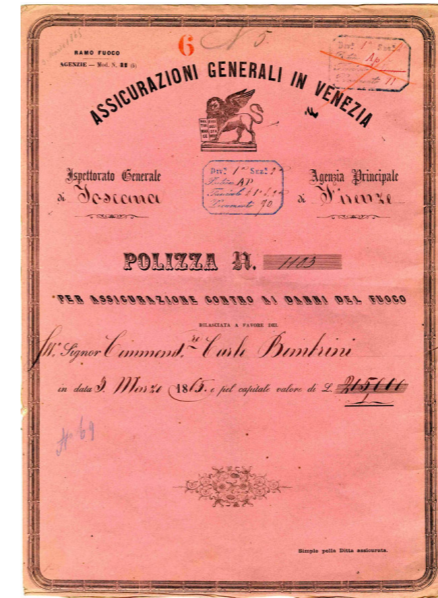 6 N 5
RAMO FUOCO
AGENZIE — Mod. N.
ASSICURAZIONI GENERALI IN VENEZIA
Ispettorato Generale
di Toscana
Agenzia Principale
di Firenze
Div.e 1a Sez.e 2a
AP
90
POLIZZA N. 1123
PER ASSICURAZIONE CONTRO AI DANNI DEL FUOCO
RILASCIATA A FAVORE DEL
Ill.o Signor Command.r Carlo Bombrini
in data 3 Marzo 1865 e pel capitale valore di L. 215,000
No 69
Simple pella Ditta assicurata.